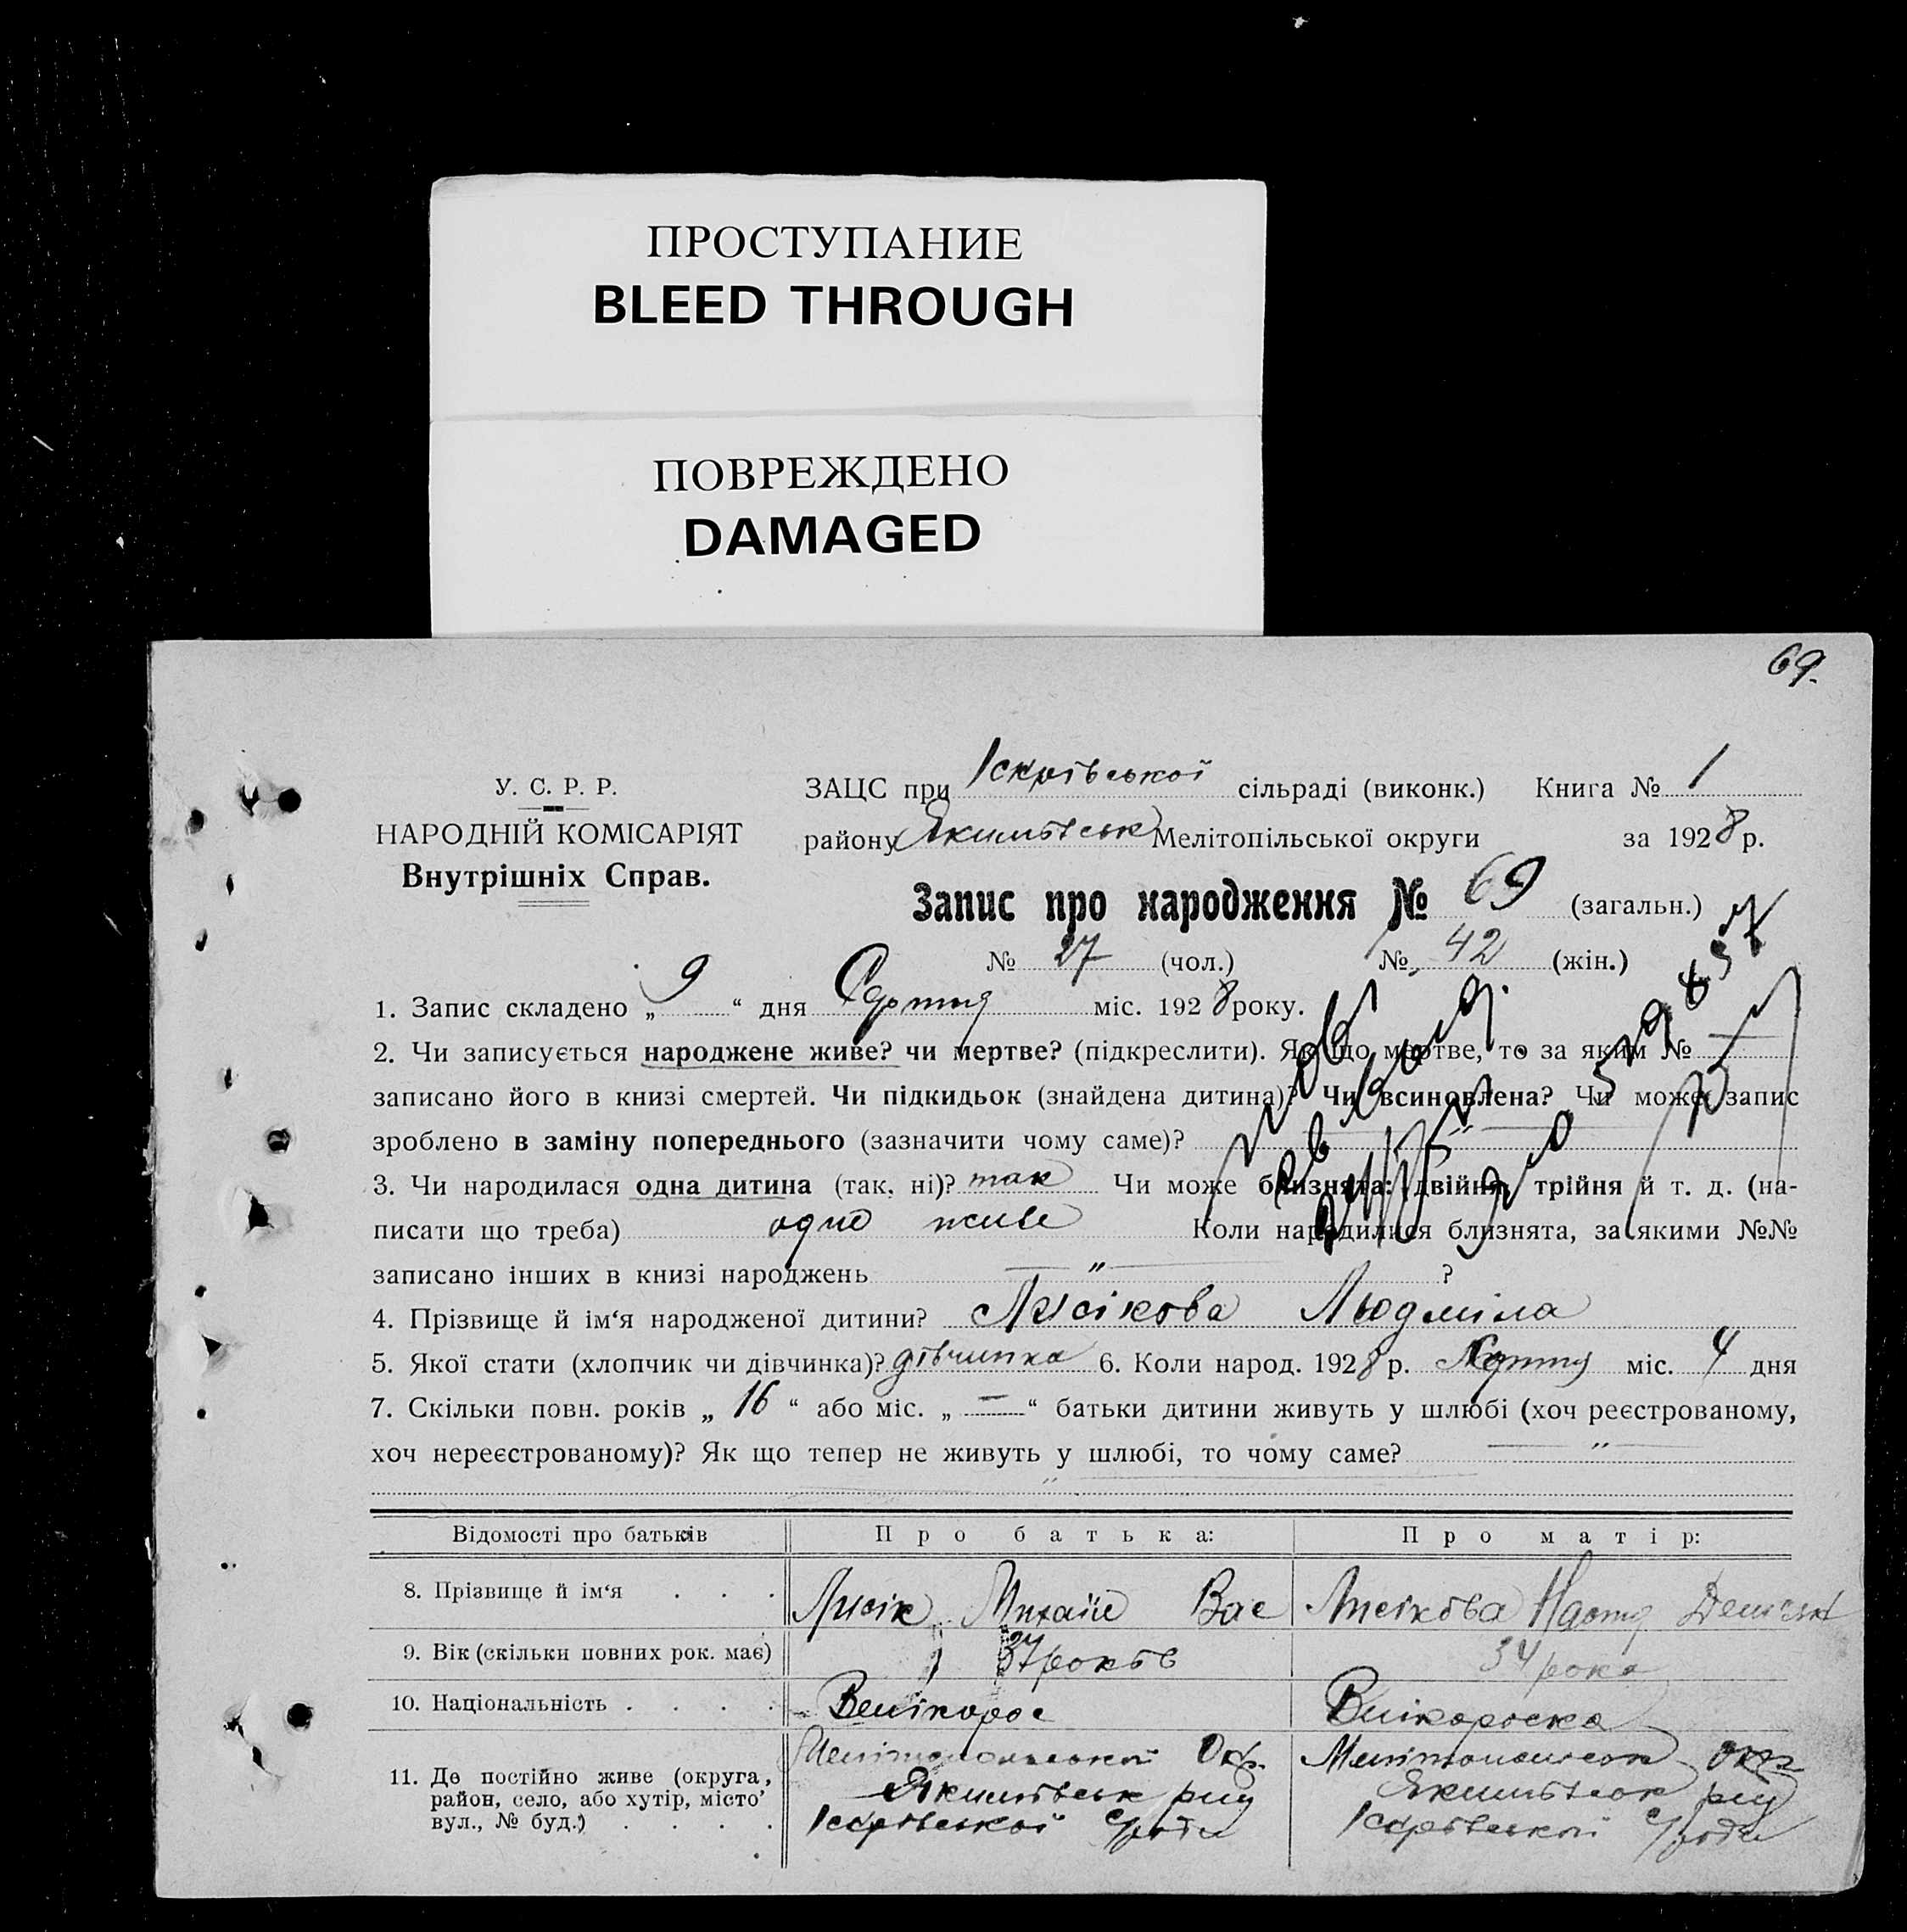 ПРОСТУПАНИЕ
BLEED THROUGH
ПОВРЕЖДЕНО
DAMAGED
69.
У. С. Р. Р.
НАРОДНІЙ КОМІСАРІЯТ
Внутрішніх Справ.
ЗАЦС при Іскрівської сільраді (виконк.) Книга № 1
району Якимівськ Мелітопільської округи за 1928 р.
Запис про народження № 69 (загальн.)
№ 27 (чол.) № 42 (жін.)
1. Запис складено „ 9 “ дня Серпня міс. 1928 року.
2. Чи записується народжене живе? чи мертве? (підкреслити). Як що мертве, то за яким №
записано його в книзі смертей. Чи підкидьок (знайдена дитина)? Чи всиновлена? Чи може запис
зроблено в заміну попереднього (зазначити чому саме)?
3. Чи народилася одна дитина (так, ні)? так Чи може близнята: двійня, трійня й т. д. (на-
писати що треба) одно живе Коли народилися близнята, за якими №№
записано інших в книзі народжень „ ?
4. Прізвище й ім‘я народженої дитини? Лисікова Людміла
5. Якої стати (хлопчик чи дівчинка)? дівчинка 6. Коли народ. 1928 р. Серпня міс. 4 дня
7. Скільки повн. років „ 16 “ або міс. „ — “ батьки дитини живуть у шлюбі (хоч реєстрованому,
хоч нереєстрованому)? Як що тепер не живуть у шлюбі, то чому саме? „
Відомості про батьків Про батька: Про матір:
8. Прізвище й ім‘я . . . Лисік Михайло Вас Лисікова Настя
9. Вік (скільки повних рок. має) 37 років 34 рока
10. Національність . . . . Велікорос Влікороска
11. Де постійно живе (округа,
район, село, або хутір, місто’
вул., № буд.) . . . .
Мелітопольської Окр. Якимівськ рну Іскрівської с/ради
Мелітопольськ окр Якимівськ рну Іскрівської с/ради